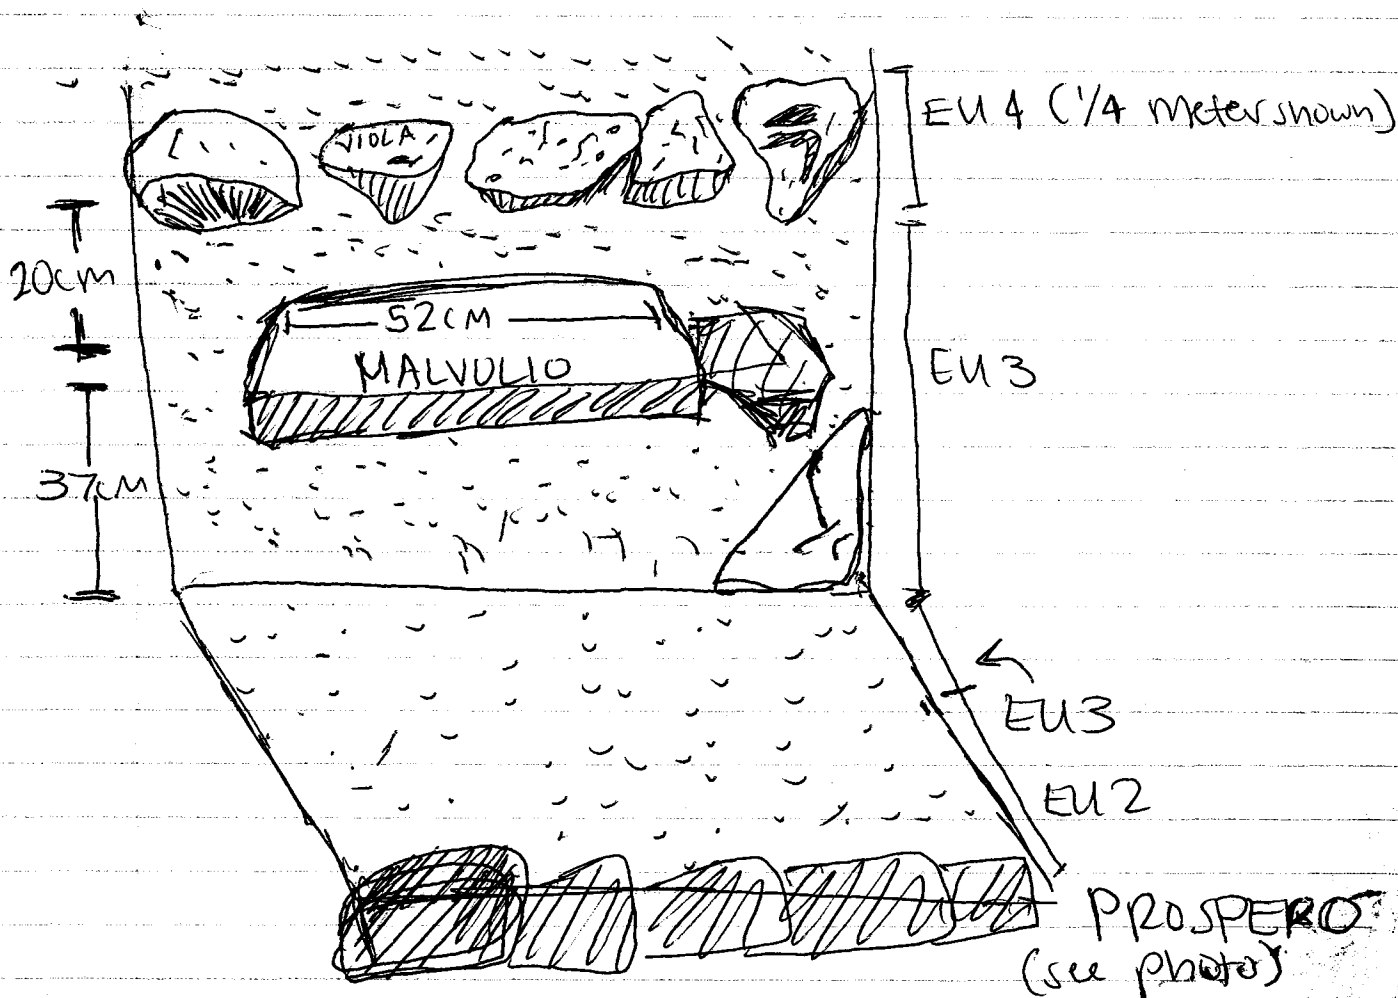 EU 4 (1/4 meter shown)
VIOLA
20cm
52CM
MALVOLIO
EU3
37CM
EU3
EU2
PROSPERO
(see photo)